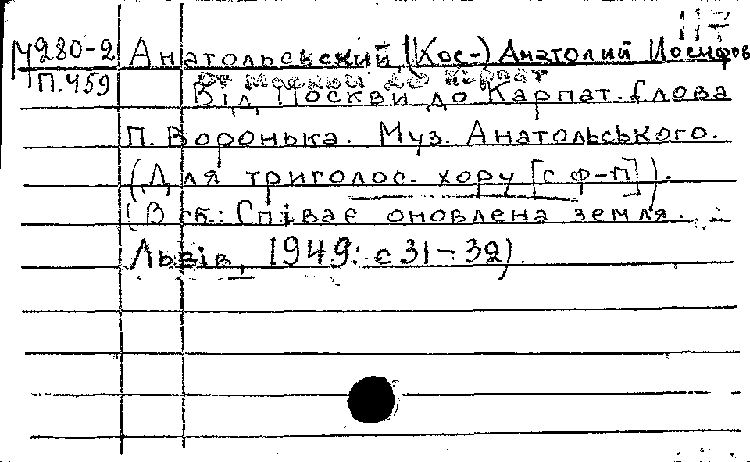 117
М280-2 Анатольевский, (Кос-) Анатолий Иосифов
П.459 От Москвы до Карпат
Від Москви до Карпат. Слова
П. Воронька. Муз. Анатольського.
(Для триголос. хору [с ф-п]).
(В сб.: Співає оновлена земля.
Львів, 1949: с 31-32)